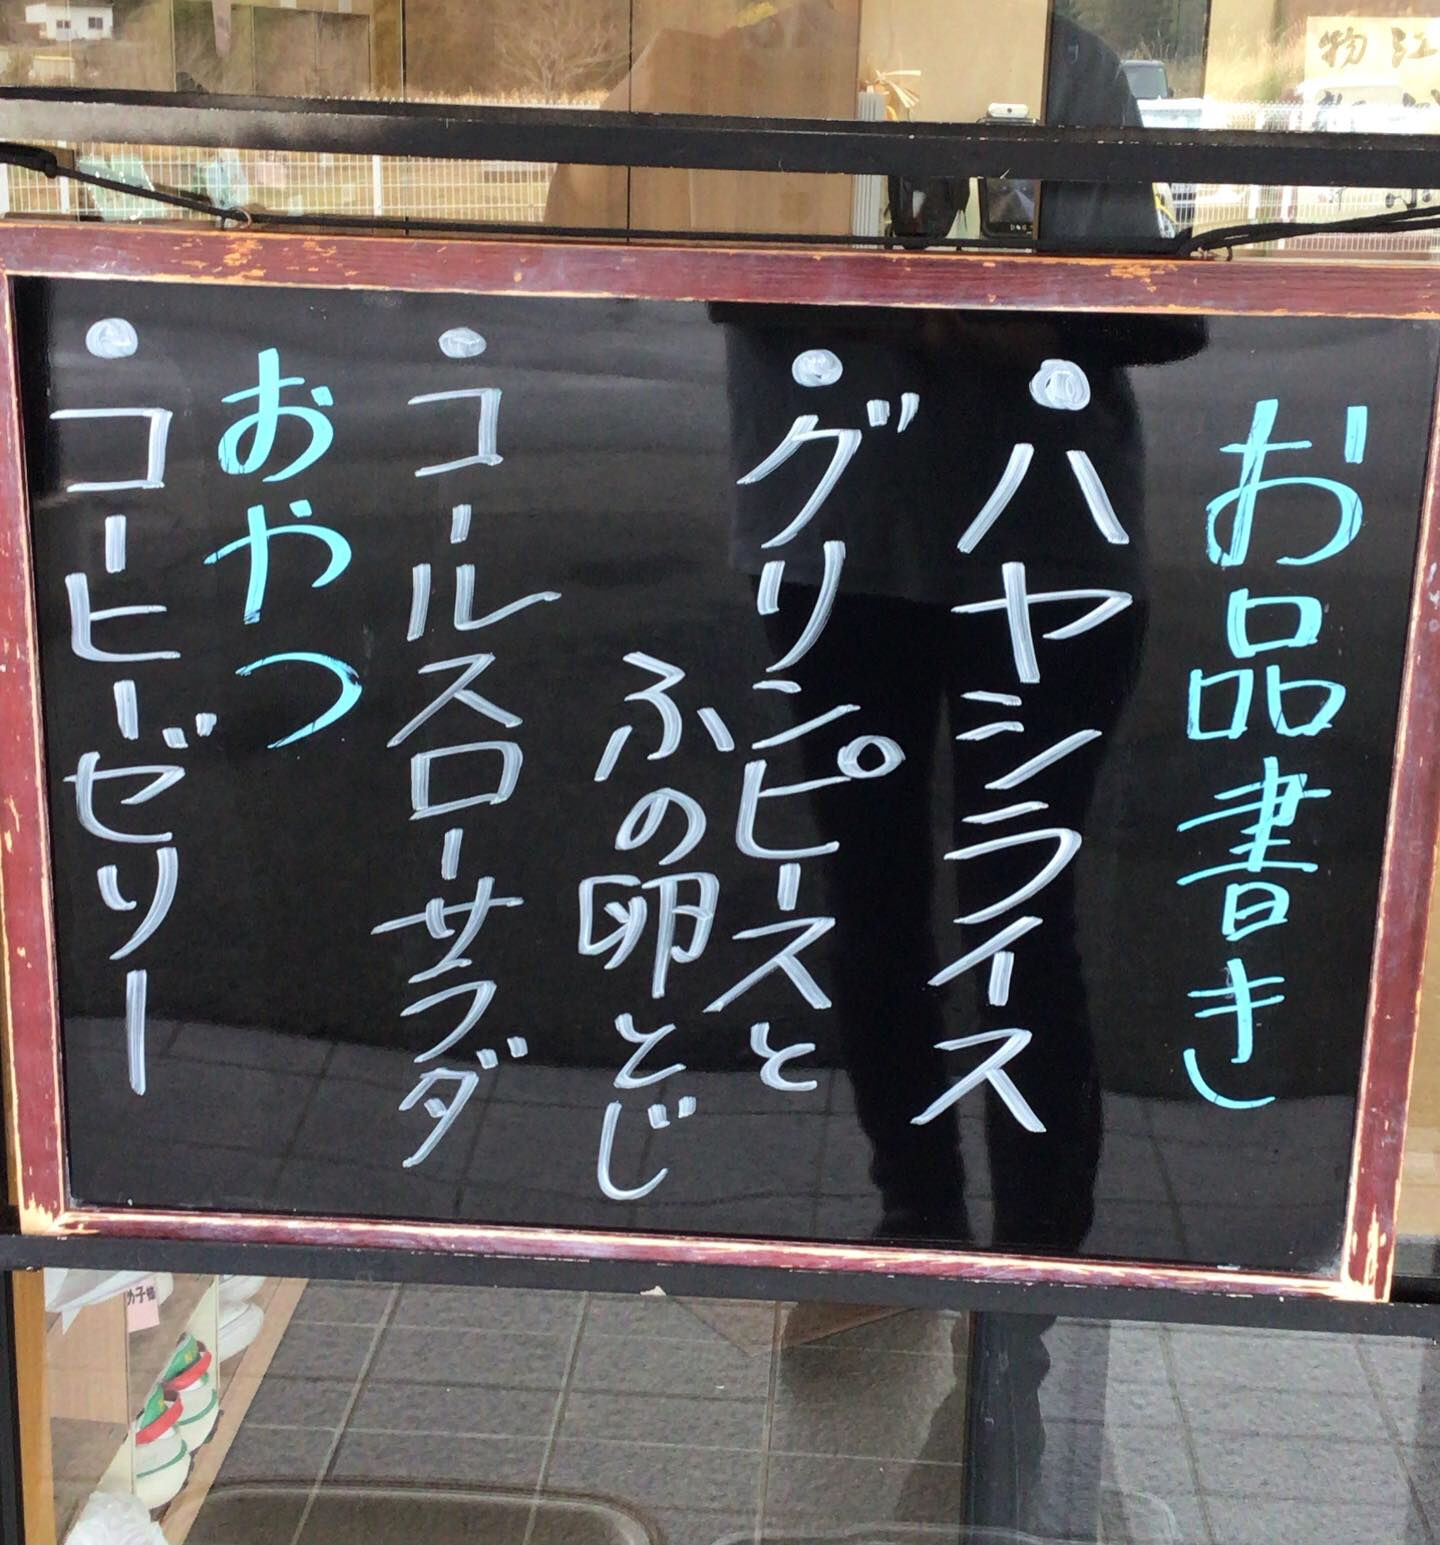 お品書き
●ハヤシライス
●グリンピースと
ふの卵とじ
●コールスローサラダ
おやつ
●コーヒーゼリー
物江